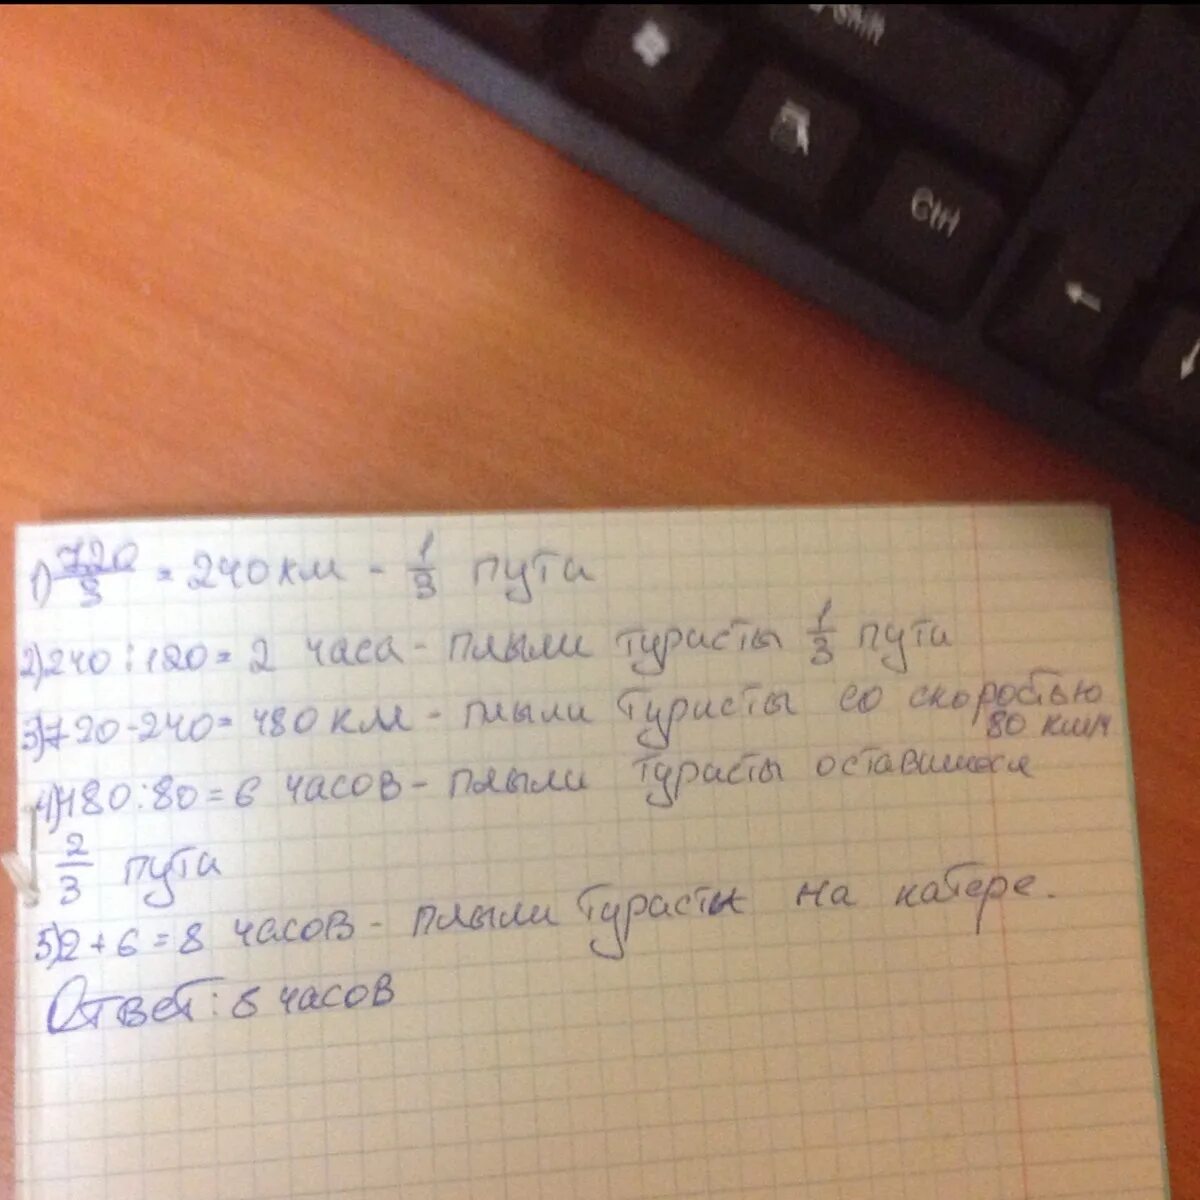 Ctrl
←
1) 720/3 = 240 км - 1/3 пути
2) 240 : 120 = 2 часа - плыли туристы 1/3 пути
3) 720 - 240 = 480 км - плыли туристы со скоростью
80 км/ч
4) 480 : 80 = 6 часов - плыли туристы оставшиеся
2/3 пути
5) 2 + 6 = 8 часов - плыли туристы на катере.
Ответ: 8 часов